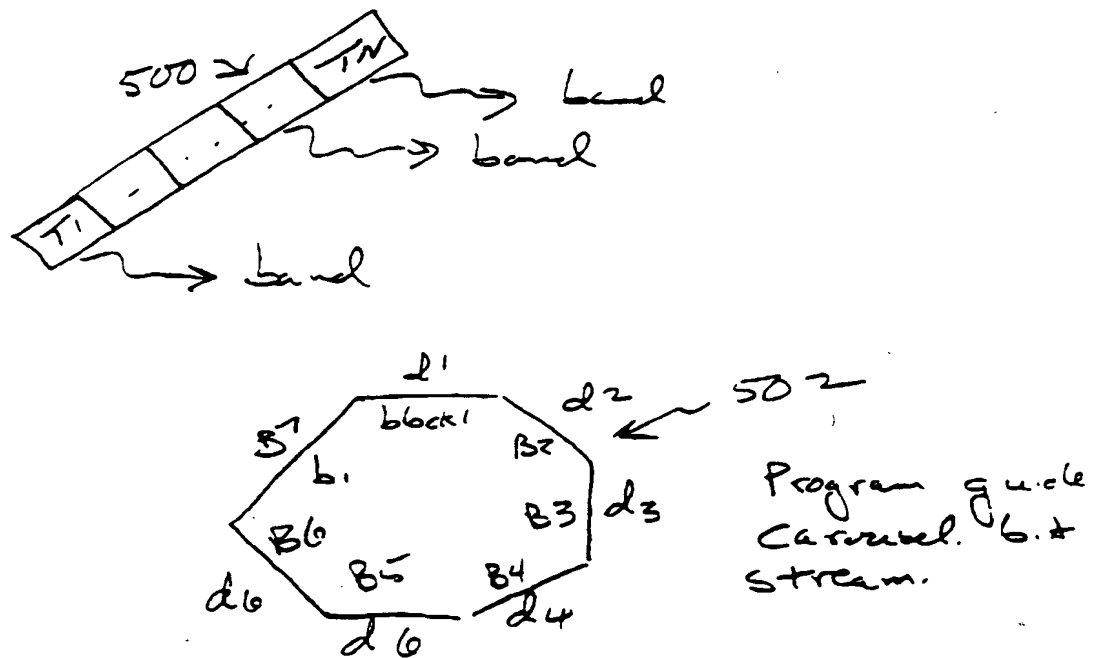 500
TN
. .
.
-
T1
band
band
band
d1
block1
d2
502
B7
b1
B2
B3
d3
B6
B5
B4
d4
d6
d6
Program guide
Carousel. bit
stream.